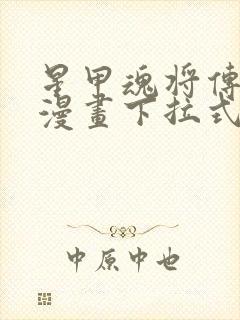 星甲魂将傳
漫畫下拉式
中原中也